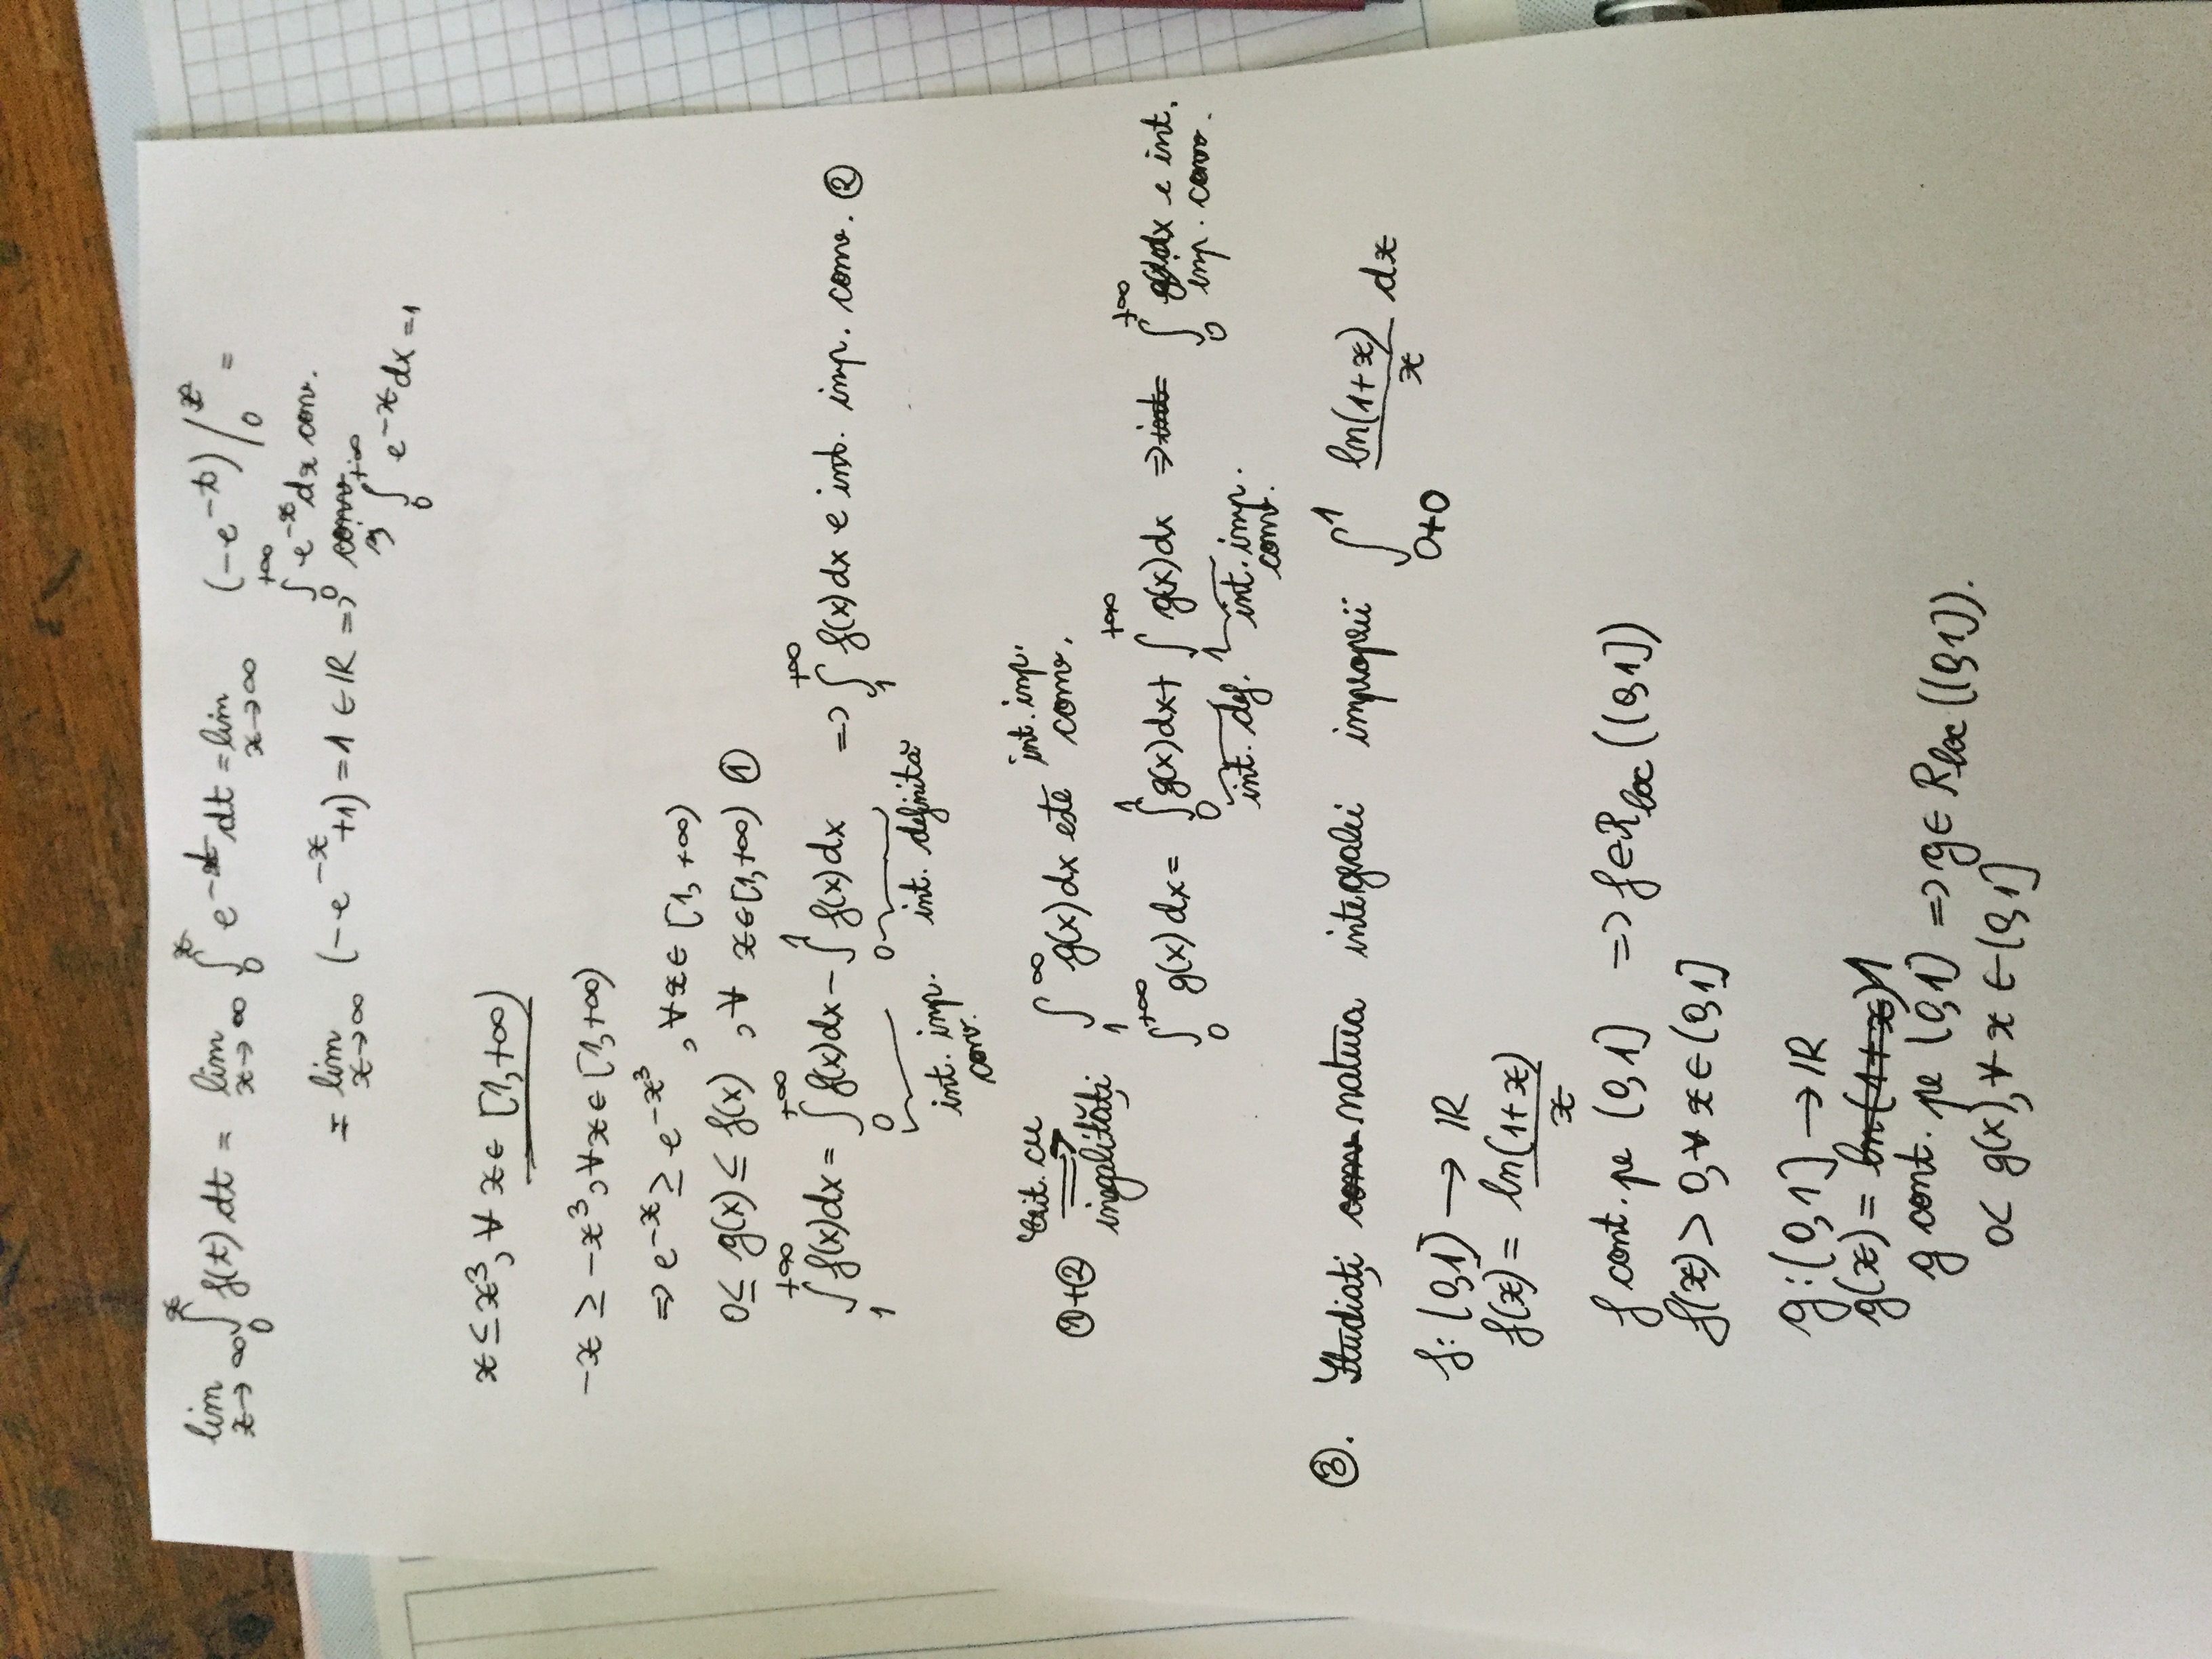 lim x→∞ ∫₀ˣ f(t) dt = lim x→∞ ∫₀ˣ e^{-t} dt = lim x→∞ (-e^{-t}) /₀ˣ =
= lim x→∞ (-e^{-x}+1) = 1 ∈ ℝ ⇒ ∫₀^{+∞} e^{-x} dx conv.
și ∫₀^{+∞} e^{-x} dx = 1
x ≤ x³, ∀ x ∈ [1,+∞)
-x ≥ -x³, ∀ x ∈ [1,+∞)
⇒ e^{-x} ≥ e^{-x³}, ∀ x ∈ [1, +∞)
0 ≤ g(x) ≤ f(x), ∀ x ∈ [1,+∞) ①
∫₁^{+∞} f(x)dx = ∫₀^{+∞} f(x)dx - ∫₀¹ f(x)dx ⇒ ∫₁^{+∞} f(x)dx e int. imp. conv. ②
int. imp. conv. int. definită
①+② Crit. cu inegalități ⇒ ∫₁^∞ g(x)dx este int. imp. conv.
∫₀^{+∞} g(x)dx = ∫₀¹ g(x)dx + ∫₁^{+∞} g(x)dx ⇒ ∫₀^{+∞} g(x)dx e int. imp. conv.
int. def. int. imp. conv.
③. Studiați natura integralei improprii ∫_{0+0}^1 ln(1+x)/x dx
f: (0,1] → ℝ
f(x) = ln(1+x)/x
f cont. pe (0,1] ⇒ f ∈ R_loc((0,1])
f(x) > 0, ∀ x ∈ (0,1]
g: (0,1] → ℝ
g(x) = 1
g cont. pe (0,1] ⇒ g ∈ R_loc((0,1]).
0 < g(x), ∀ x ∈ (0,1]